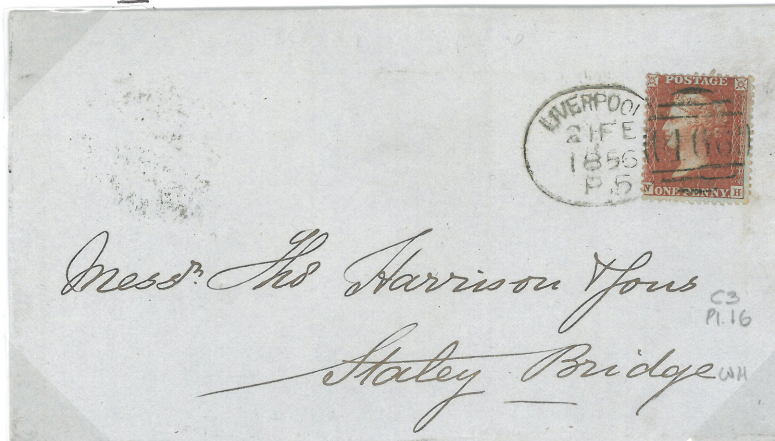 POSTAGE
LIVERPOOL
21 FE
1856
P 5
466
N ONE PENNY H
Messrs. Thos Harrison & Sons
C3
Pl.16
Staley Bridge
WH